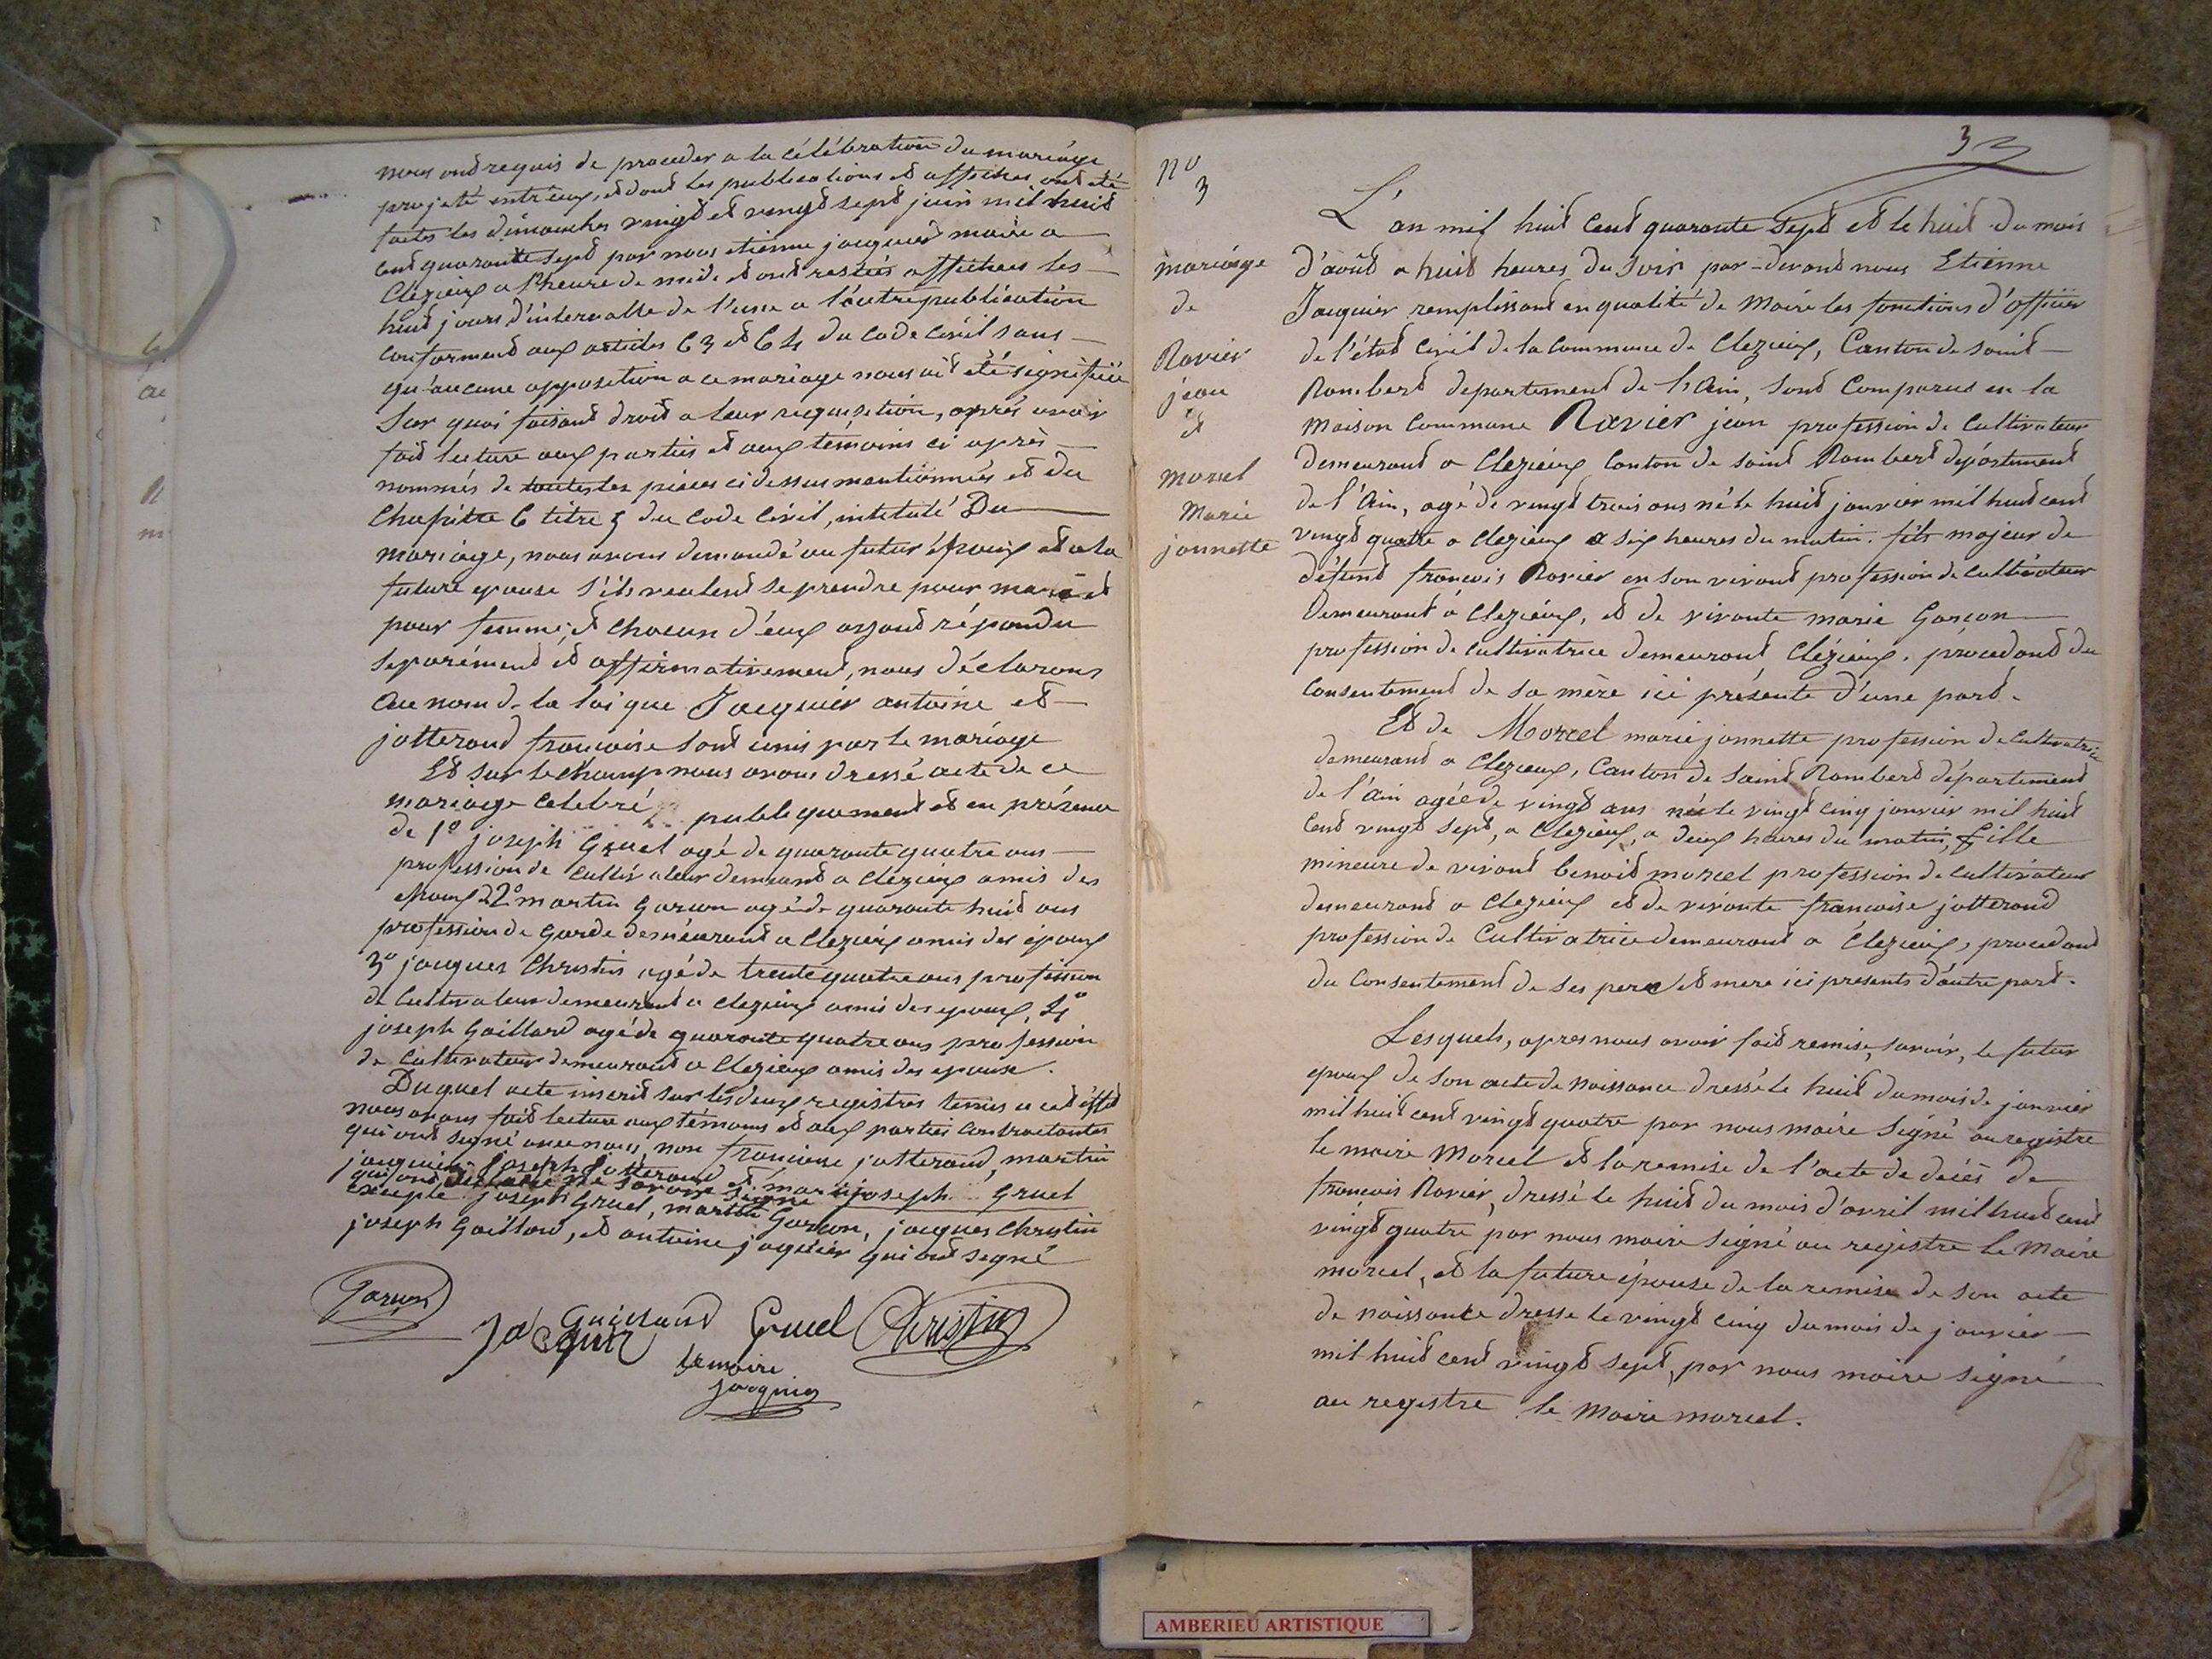 nous ont requis de proceder a la célébration du mariage
projeté entr'eux, et dont les publications et affiches ont été
faites les dimanches vingt et vingt sept juin mil huit
cent quarante sept par nous etienne jacquier maire a
Clezieux a l'heure de midi et ont restées affichées les
huit jours d'intervalle de l'une a l'autre publication
conforment aux articles 63 et 64 du code Civil sans
qu'aucune opposition a ce mariage nous ait été signifiée
Sur quoi faisant droit a leur requisition, après avoir
fait lecture aux parties et aux temoins ci après
nommés de toutes les pièces ci dessus mentionnées et du
Chapitre 6 titre 5 du Code Civil, intitulé Du
mariage, nous avons demandé au futur époux et a la
future epouse s'ils veulent se prendre pour mari et
pour femme, et chacun d'eux ayant répondu
separément et affirmativement, nous déclarons
au nom de la loi que Jacquier antoine et
jotterand francoise sont unis par le mariage
Et sur le champ nous avons dressé acte de ce
mariage celebré publiquement et en présence
de 1º joseph Gruel agé de quarante quatre ans
profession de Cultivateur demeurant a Clezieux amis des
epoux 2º martin Garcon agé de quarante huit ans
profession de Garde demeurant a Clezieux amis des époux
3º jacques Christin agé de trente quatre ans profession
de Cultivateur demeurant a Clezieux amis des epoux, 4º
joseph Gaillard agé de quarante quatre ans profession
de Cultivateur demeurant a Clezieux amis des epouse.
Duquel acte inscrit sur les deux registres tenus a cet effet
nous avons fait lecture aux témoins et aux parties Contractantes
qui ont signé avec nous, non francoise jotterand, martin
jacquier joseph jotterand et joseph Gruel
qui ont déclaré ne savoir signé
excepte joseph Gruel, martin Garcon, jacques Christin
joseph Gaillard, et antoine jaquier qui ont segné
Garcon
Gaillard Gruel Christin
Jacquier
Le maire
Jacquier
3
nº
3
mariage
de
Ravier
jean
et
Marcel
Marie
jannette
L'an mil huit Cent quarante Sept et le huit du mois
d'août a huit heures du Soir par-devant nous Etienne
Jacquier remplissant en qualité de Maire les fonctions d'officier
de l'état Civil de la Commune de Clezieux, Canton de saint
Rambert departement de l'Ain, sont Comparus en la
maison Commune Ravier jean profession de Cultivateur
demeurant a Clezieux Canton de saint Rambert département
de l'Ain, agé de vingt trois ans né le huit janvier mil huit cent
vingt quatre a Clezieux a six heures du matin. fils majeur de
défunt francois Ravier en son vivant profession de Cultivateur
demeurant á Clezieux, et de vivante marie Garcon
profession de Cultivatrice demeurant Clézieux. procedant du
Consentement de sa mère ici présente d'une part.
Et de Marcel marie jannette profession de Cultivatrice
demeurant a Clezieux, Canton de saint Rambert département
de l'Ain agée de vingt ans née le vingt cinq janvier mil huit
Cent vingt sept, a Clezieux, a deux heures du matin, fille
mineure de vivant benoit marcel profession de Cultivateur
demeurant a Clezieux et de vivante francoise jotterand
profession de Cultivatrice demeurant a Clezieux, procedant
du Consentement de ses pere et mere ici presents d'autre part.
Lesquels, apres nous avoir fait remise, savoir, le futur
epoux de son acte de naissance dressé le huit du mois de janvier
mil huit cent vingt quatre par nous maire signé au registre
le maire Marcel et la remise de l'acte de décès de
francois Ravier, dressé le huit du mois d'avril mil huit cent
vingt quatre par nous maire signé au registre le Maire
marcel, et la future épouse de la remise de son acte
de naissance dresse le vingt cinq du mois de janvier
mil huit cent vingt sept, par nous maire signé
au registre le Maire marcel.
AMBERIEU ARTISTIQUE